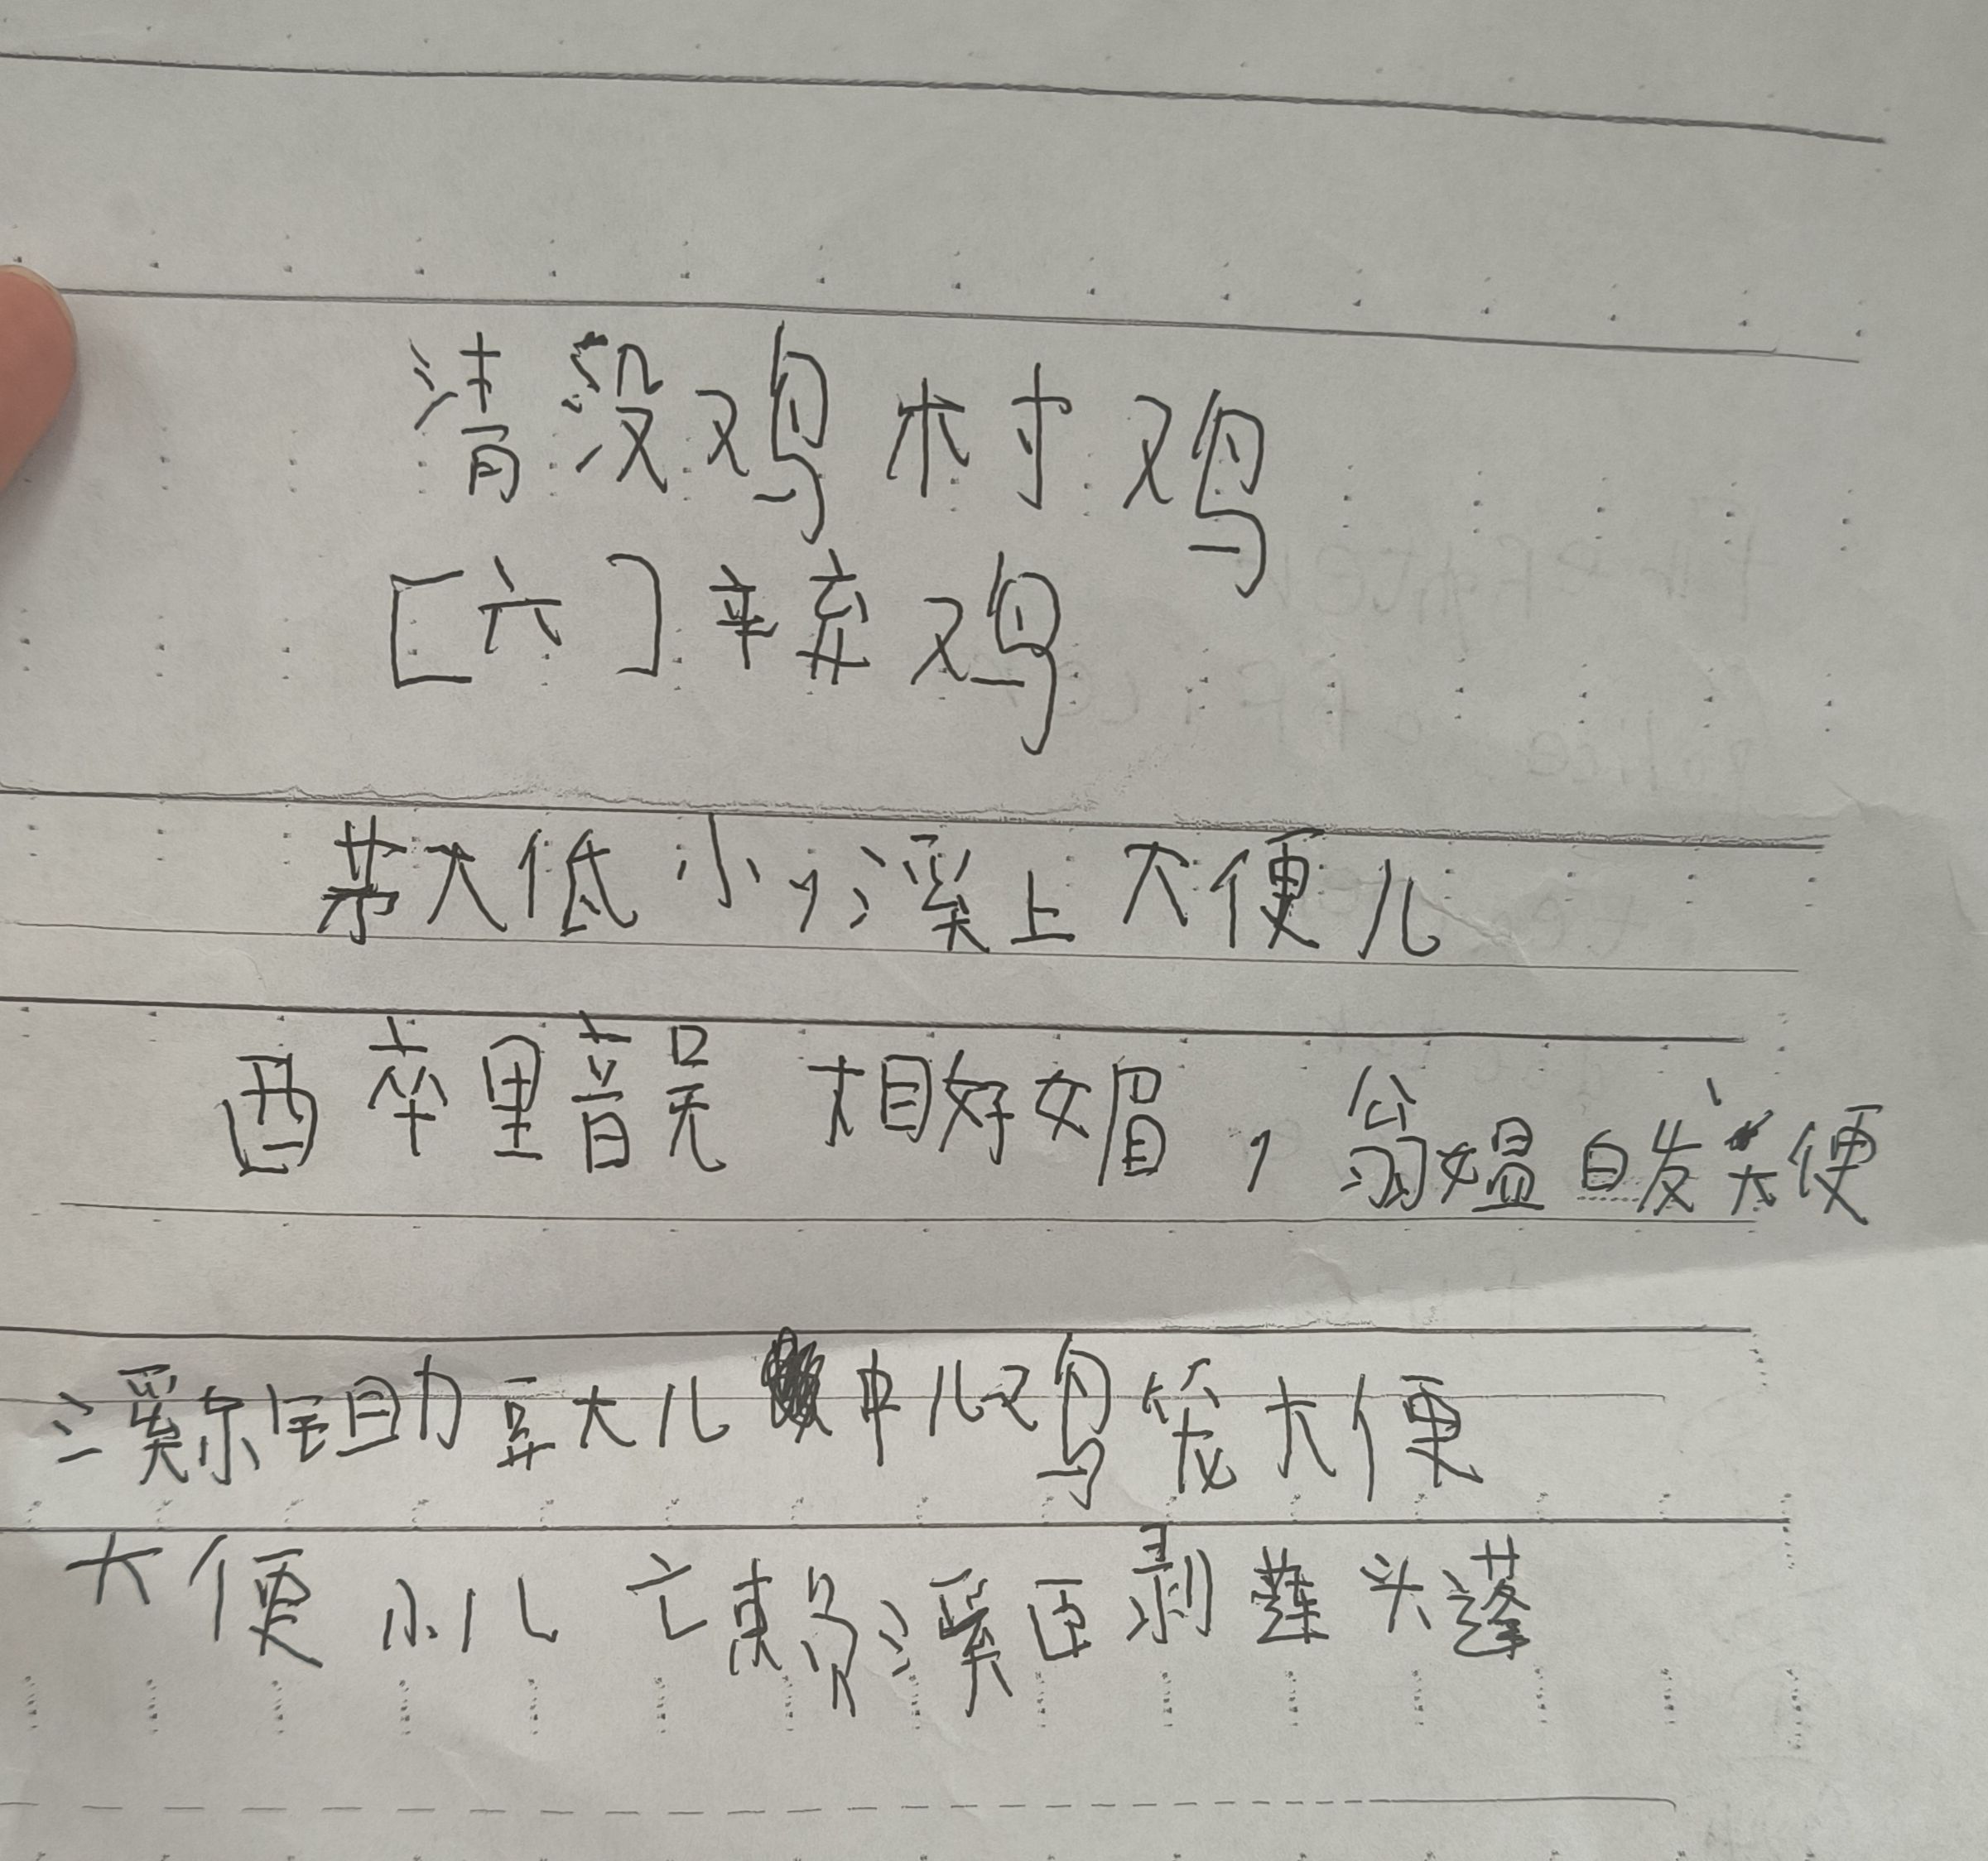 清没鸡村鸡
[六]辛弃鸡
茅大低小,溪上大便儿
酉卒里音吴 相好媚,翁媪白发大便
溪东锄豆大儿 中儿鸡笼大便
大便小儿亡赖溪面剥莲头蓬